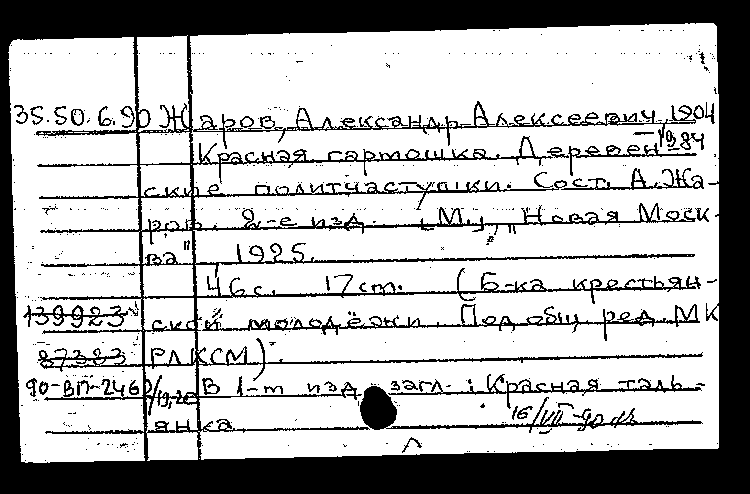 35.50.6.90 Жаров, Александр Алексеевич, 1904
—1984
Красная гармошка. Деревен-
ские политчастушки. Сост. А. Жа-
ров. 2-е изд. [М.], "Новая Моск-
ва", 1925.
46 с. 17 cm. (Б-ка крестьян-
139923 ской молодёжи. Под общ. ред. МК
87383 РЛКСМ).
90-ВП-2460 В 1-м изд. загл.: Красная таль-
янка
16/VII-90